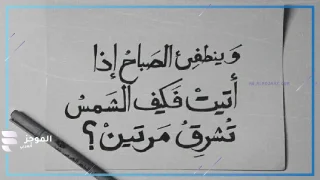 وَينطفِئ الصَباحُ إذا
أتيتْ فَكيف الشَمسُ
تُشرقُ مَرتينْ؟
الموجز